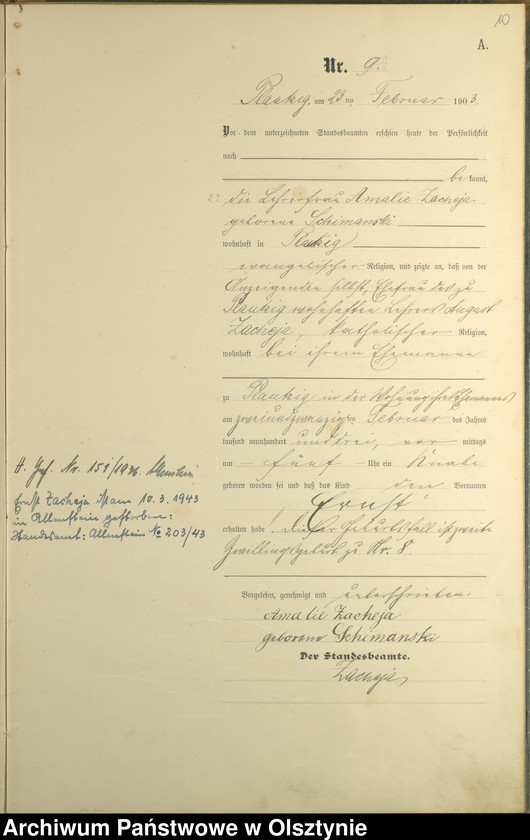 10
A.
Nr. 9.
Plautzig, am 23 ten Februar 1903.
Vor dem unterzeichneten Standesbeamten erschien heute der Persönlichkeit
nach
bekannt,
die Lehrerfrau Amalie Zacheja
geborene Schimanski
wohnhaft in
evangelischer Religion, und zeigte an, daß von der
Anzeigenden selbst, Ehefrau des zu
wohnhaften Lehrers August
Zacheja, katholischer Religion,
wohnhaft bei ihrem Ehemanne
zu in der Wohnung ihres Ehemannes
am zweiundzwanzigsten Februar des Jahres
tausend neunhundert und drei, vor mittags
um fünf Uhr ein Knabe
geboren worden sei und daß das Kind den Vornamen
Ernst
erhalten habe. Dieser Geburtsfall ist zweite
Zwillingsgeburt zu Nr. 8.
Vorgelesen, genehmigt und unterschrieben.
Amalie Zacheja
geborene Schimanski
Der Standesbeamte.
Zacheja
H. Nr. 151/1936 Allenstein
Ernst Zacheja ist am 10.3.1943
in Allenstein gestorben:
Standesamt: Allenstein No 203/43
Archiwum Państwowe w Olsztynie